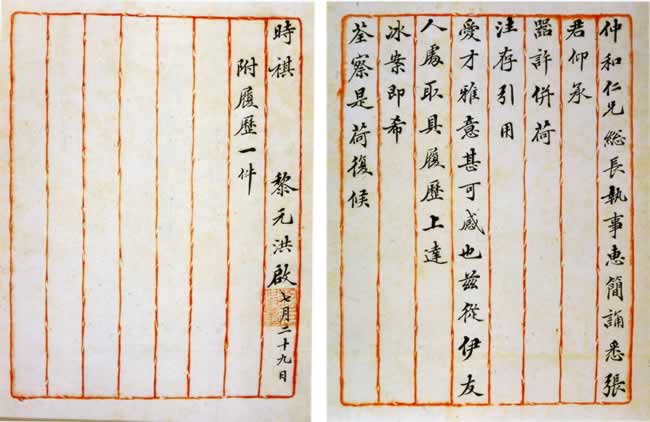 仲和仁兄総長執事惠簡誦悉張
君仰承
器許併荷
注存引用
愛才雅意甚可感也兹從伊友
人處取具履歷上達
冰案即希
荃察是荷復候
時祺　黎元洪啟七月二十九日
附履歷一件